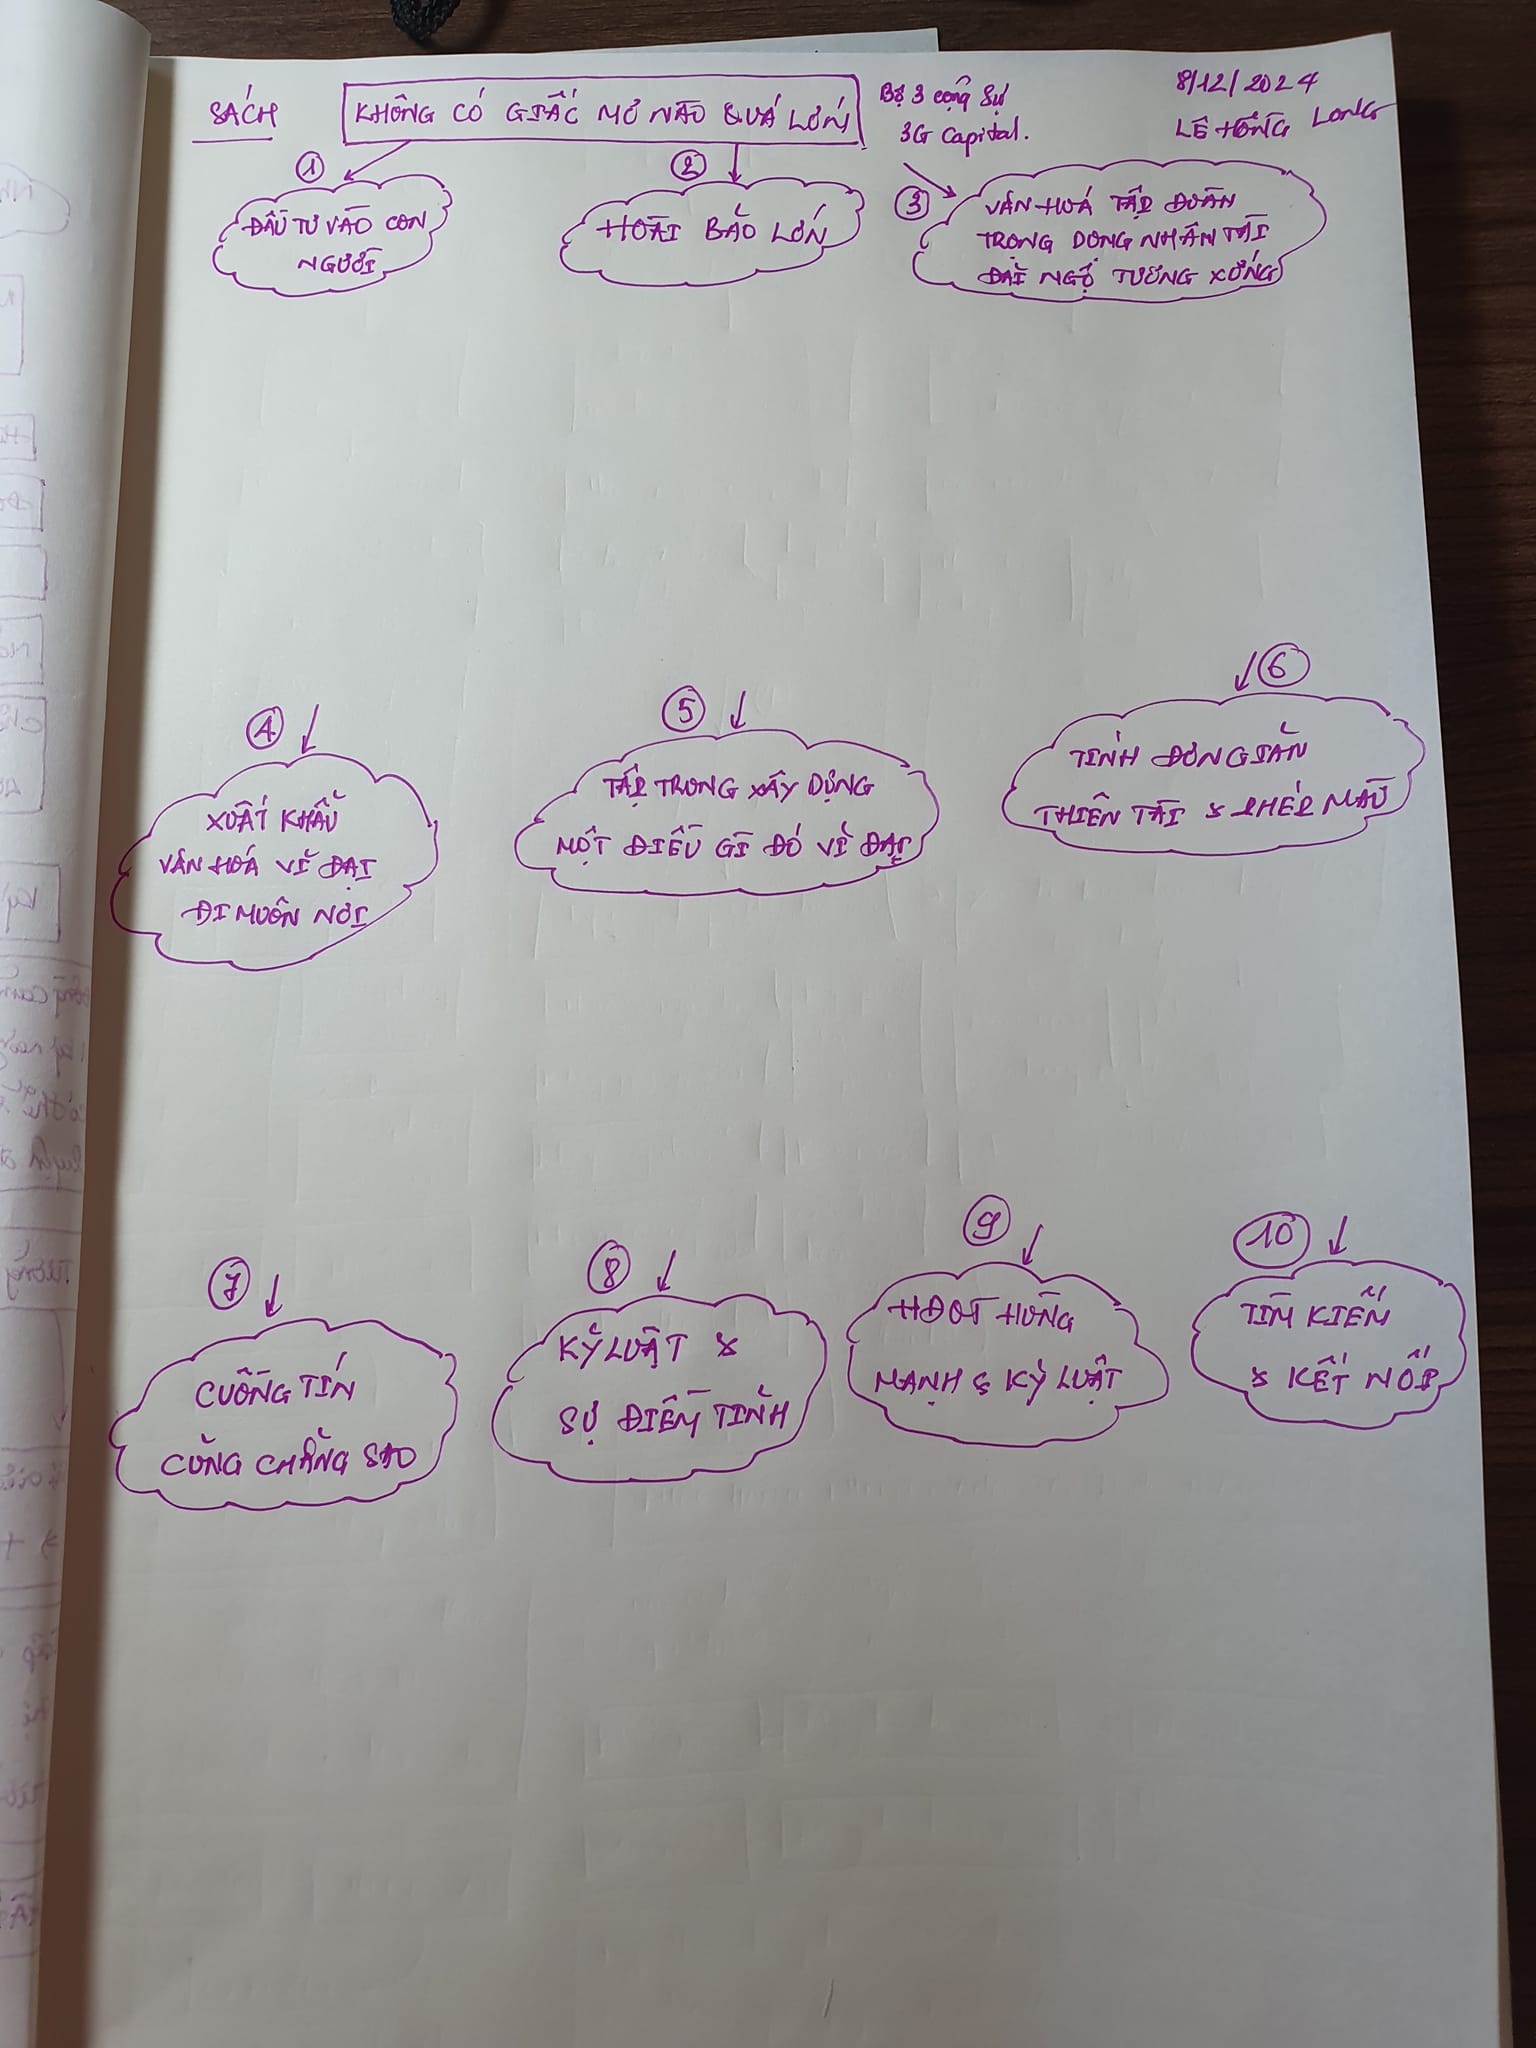 SÁCH
KHÔNG CÓ GIẤC MƠ NÀO QUÁ LỚN
Bộ 3 cộng sự
3G Capital.
8/12/2024
LÊ HỒNG LONG
1
ĐẦU TƯ VÀO CON
NGƯỜI
2
HOÀI BÃO LỚN
3
VĂN HOÁ TẬP ĐOÀN
TRỌNG DỤNG NHÂN TÀI
ĐÃI NGỘ TƯƠNG XỨNG
4
XUẤT KHẨU
VĂN HOÁ VĨ ĐẠI
ĐI MUÔN NƠI
5
TẬP TRUNG XÂY DỰNG
MỘT ĐIỀU GÌ ĐÓ VĨ ĐẠI
6
TÍNH ĐƠN GIẢN
THIÊN TÀI & PHÉP MÀU
7
CUỒNG TÍN
CŨNG CHẲNG SAO
8
KỶ LUẬT &
SỰ ĐIỀM TĨNH
9
HĐQT HÙNG
MẠNH & KỶ LUẬT
10
TÌM KIẾM
& KẾT NỐI